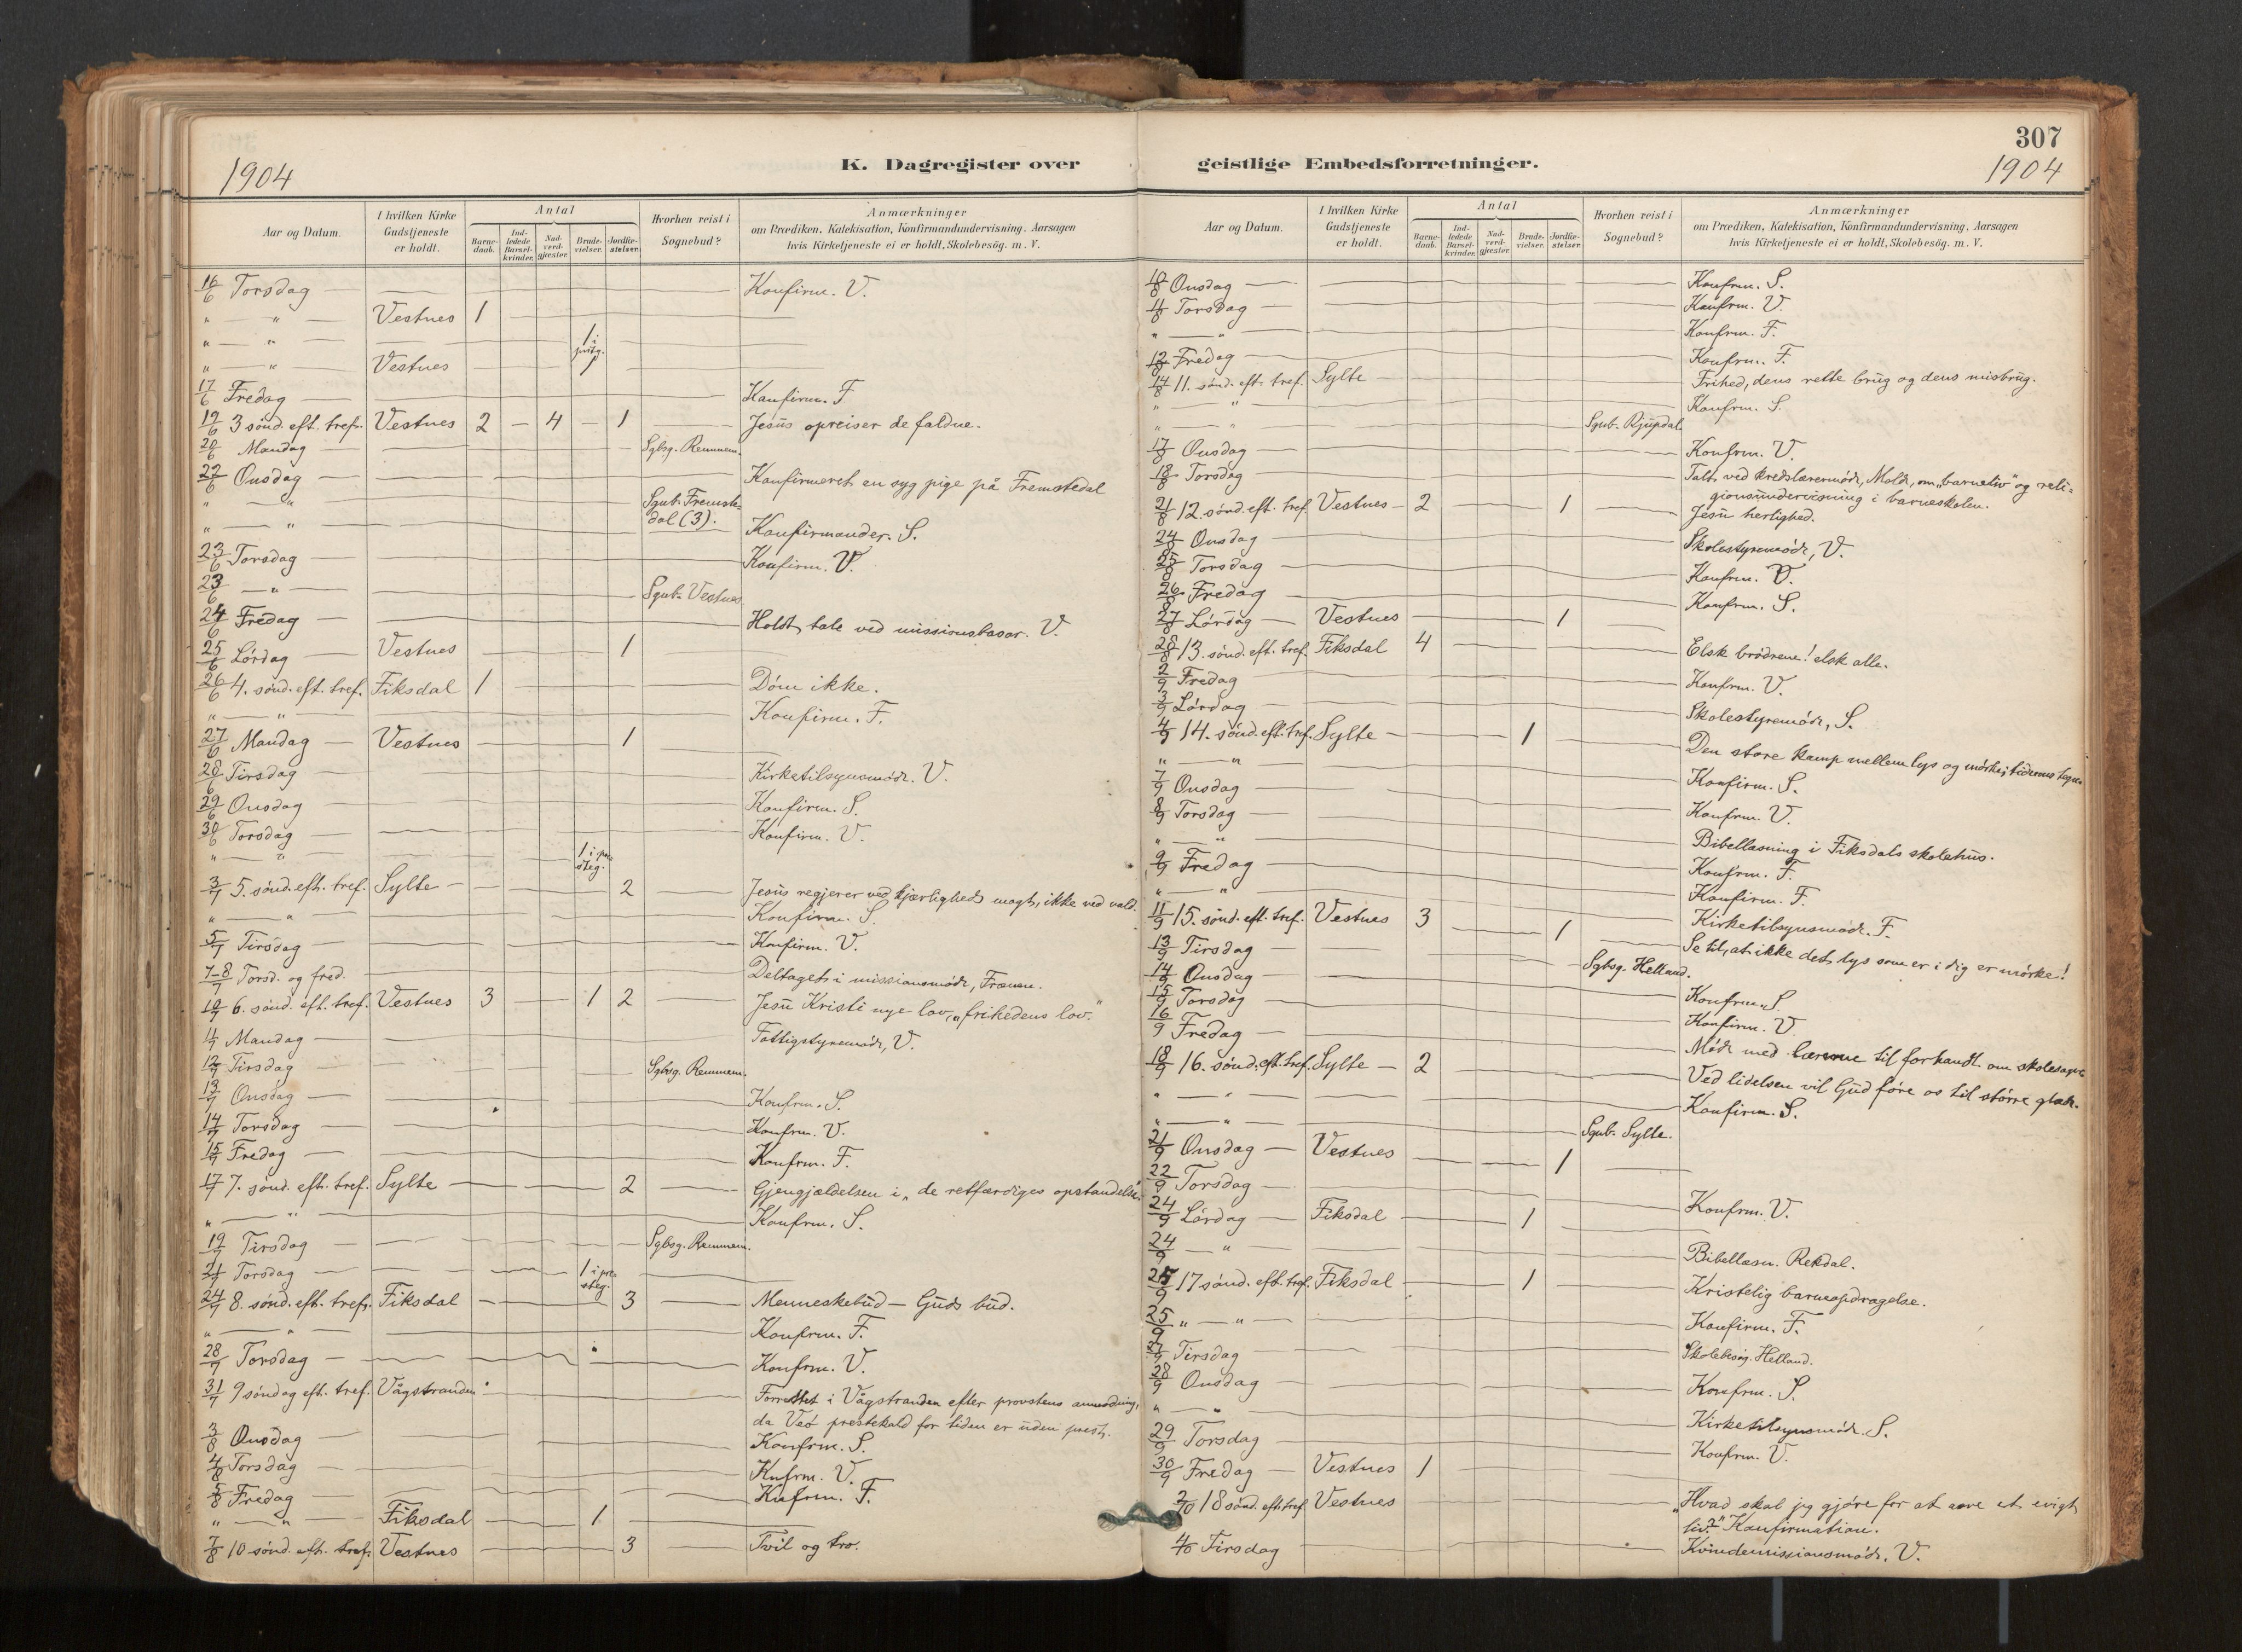 307
1904
K. Dagregister over geistlige Embedsforretninger.
1904
Aar og Datum.
I hvilken Kirke Gudstjeneste er holdt.
Antal
Barne-daab.
Ind-ledede Barsel-kvinder.
Nad-verd-gjæster.
Brude-vielser.
Jordfæ-stelser.
Hvorhen reist i Sognebud?
Anmærkninger
om Prædiken, Katekisation, Konfirmandundervisning, Aarsagen
hvis Kirketjeneste ei er holdt, Skolebesög. m. V.
16/6 Torsdag — Konfirm. V.
" — " — Vestnes 1
" — " — 1 i pstg.
" — " Vestnes 1
17/6 Fredag — Konfirm. F
19/6 3 sönd. eft. tref. Vestnes 2 — 4 — 1 Jesus opreiser de faldne.
20/6 Mandag — Sgbsg. Remmem.
22/6 Onsdag — Konfirmeret en syg pige på Fremstedal
" — " Sgub. Fremste-
dal (3).
" — " Konfirmander. S.
23/6 Torsdag — Konfirm. V.
23/6 — " — Sgub. Vestnes
24/6 Fredag — Holdt tale ved missionsbasar. V.
25/6 Lördag — Vestnes 1
26/6 4. sönd. eft. tref. Fiksdal 1 Döm ikke.
" — " Konfirm. F.
27/6 Mandag — Vestnes 1
28/6 Tirsdag — Kirketilsynsmöde. V.
29/6 Onsdag — Konfirm. S.
30/6 Torsdag — Konfirm. V.
" — " 1 i pre
steg.
3/7 5. sönd. eft. tref. Sylte — 2 Jesus regjerer ved kjærligheds magt, ikke ved vald.
" — " Konfirm. S.
5/7 Tirsdag — Konfirm. V.
7-8/7 Torsd. og fred. Deltaget i missionsmöde, Frænen.
10/7 6. sönd. eft. tref. Vestnes 3 — 1 2 Jesu Kristi nye lov, „frihedens lov."
11/7 Mandag — Fattigstyremöde, V.
12/7 Tirsdag — Sgbsg. Remmem.
13/7 Onsdag — Konfrm. S.
14/7 Torsdag — Konfrm. V.
15/7 Fredag — Konfrm. F.
17/7 7. sönd. eft. tref. Sylte — 2 Gjengjældelsen i „de retfærdiges opstandelse".
" — " Konfrm. S.
19/7 Tirsdag — Sgbsg. Remmem.
21/7 Torsdag — 1 i pre
steg.
24/7 8. sönd. eft. tref. Fiksdal — 3 Menneskebud — Guds bud.
" — " Konfrm. F.
28/7 Torsdag — Konfrm. V.
31/7 9 söndag eft. tref. Vågstranden Forrettet i Vågstranden efter provstens anmodning,
da Veö prestekald for tiden er uden prest.
3/8 Onsdag — Konfrm. S.
4/8 Torsdag — Knfrm. V.
5/8 Fredag — Knfrm. F.
" — " — Fiksdal 1
7/8 10 sönd. eft. tref. Vestnes 3 Tvil og tro.
Aar og Datum.
I hvilken Kirke Gudstjeneste er holdt.
Antal
Barne-daab.
Ind-ledede Barsel-kvinder.
Nad-verd-gjæster.
Brude-vielser.
Jordfæ-stelser.
Hvorhen reist i Sognebud?
Anmærkninger
om Prædiken, Katekisation, Konfirmandundervisning, Aarsagen
hvis Kirketjeneste ei er holdt, Skolebesög. m. V.
10/8 Onsdag — Konfrm. S.
11/8 Torsdag — Konfrm. V.
" — " — Konfrm. F.
12/8 Fredag — Konfrm. F.
14/8 11. sönd. eft. tref. Sylte — Frihed, dens rette brug og dens misbrug.
" — " Konfrm. S.
" — " Sgub. Rjupdal.
17/8 Onsdag — Konfrm. V.
18/8 Torsdag Talt ved kredslærermöde, Molde, om „barneliv" og reli-
gionsundervisning i barneskolen.
21/8 12. sönd. eft. tref. Vestnes — 2 1 Jesu herlighed.
24/8 Onsdag — Skolestyremöde, V.
25/8 Torsdag — Konfrm. V.
26/8 Fredag — Konfrm. S.
27/8 Lördag — Vestnes 1
28/8 13. sönd. eft. tref. Fiksdal 4 Elsk brödrene! elsk alle.
2/9 Fredag — Konfrm. V.
3/9 Lördag — Skolestyremöde, S.
4/9 14. sönd. eft. tref. Sylte — 1 Den store kamp mellem lys og mörke; tidernes tegn.
" — " Konfirm. S.
7/9 Onsdag — Konfrm. V.
8/9 Torsdag — Bibellæsning i Fiksdals skolehus.
" — " Konfrm. F.
9/9 Fredag — Konfirm. F.
" — " Kirketilsynsmöde. F.
11/9 15. sönd. eft. tref. Vestnes 3 1 Se til, at ikke det lys som er i dig er mörke!
13/9 Tirsdag — Sgbsg. Helland.
14/9 Onsdag — Konfrm. S.
15/9 Torsdag Konfirm. V.
16/9 Fredag — Möde med lærerne til forhandl. om skolesager
18/9 16. sönd. eft. tref. Sylte — 2 Ved lidelsen vil Gud före os til större glæde.
" — " — Konfirm. S.
" — " — Sgub. Sylte.
21/9 Onsdag — Vestnes 1
22/9 Torsdag — Konfrm. V.
24/9 Lördag — Fiksdal 1
24/9 — " Bibellæsn. Rekdal.
25/9 17 sönd. eft. tref. Fiksdal 1 Kristelig barneopdragelse.
25/9 " — " — Konfirm. F.
27/9 Tirsdag — Skolebesög. Helland.
28/9 Onsdag — Konfrm. S.
" — " Kirketilsynsmöde. S.
29/9 Torsdag — Konfrm. V.
30/9 Fredag — Vestnes 1
2/10 18 sönd. eft. tref. Vestnes „Hvad skal jeg gjöre for at arve et evigt
liv?" Konfirmation.
4/10 Tirsdag Kvindemissionsmöde. V.